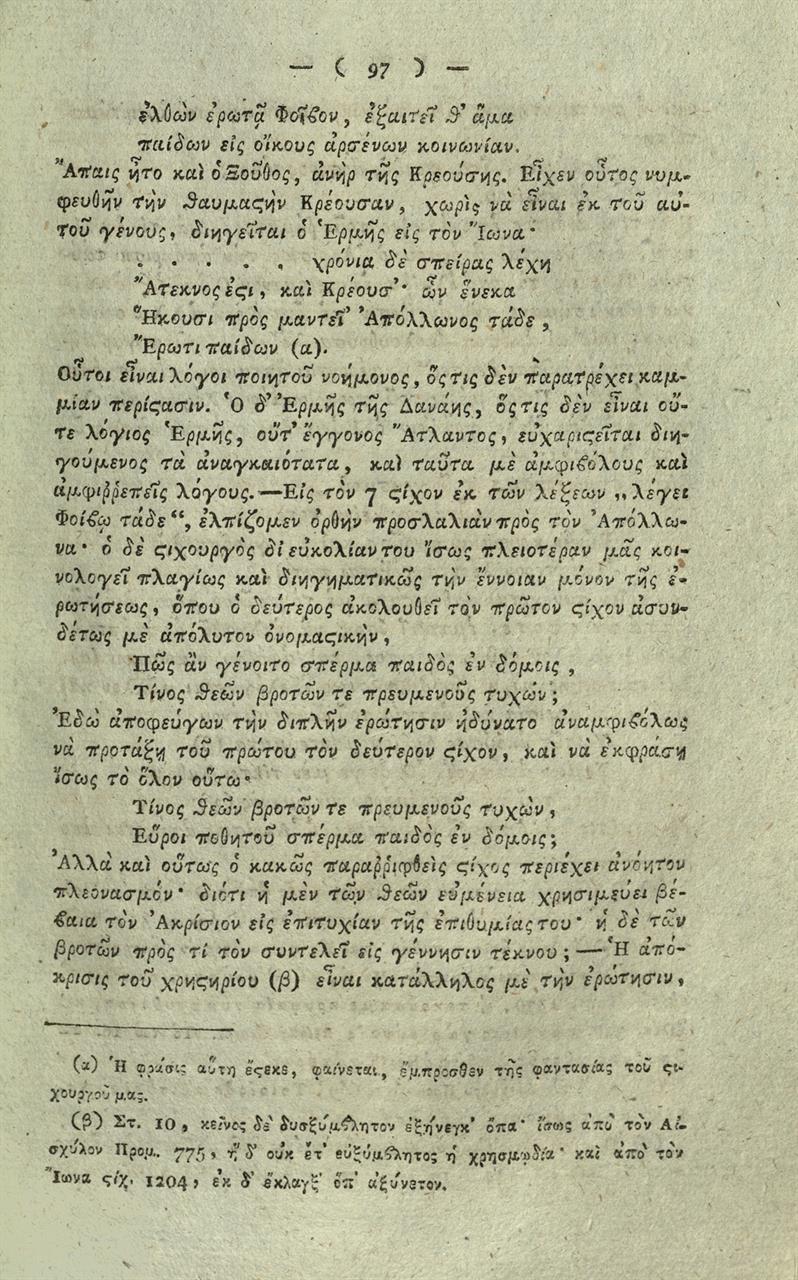 — ( 97 ) —
ἐλθὼν ἐρωτᾷ Φοῖβον, ἐξαιτεῖ θ' ἅμα
παίδων εἰς οἴκους ἀρσένων κοινωνίαν.
Ἄπαις ἦτο καὶ ὁ Ξοῦθος, ἀνὴρ τῆς Κρεούσης. Εἶχεν οὗτος νυμ-
φευθῆν τὴν θαυμαϛὴν Κρέουσαν, χωρὶς νὰ εἶναι ἐκ τοῦ αὐ-
τοῦ γένους, διηγεῖται ὁ Ἑρμῆς εἰς τὸν Ἴωνα·
. . . . . χρόνια δὲ σπείρας λέχη
Ἄτεκνος ἐϛι, καὶ Κρέουσ'· ὧν ἕνεκα
Ἥκουσι πρὸς μαντεῖ' Ἀπόλλωνος τάδε,
Ἔρωτι παίδων (α).
Οὗτοι εἶναι λόγοι ποιητοῦ νοήμονος, ὅς τις δὲν παρατρέχει καμ-
μίαν περίϛασιν. Ὁ δ' Ἑρμῆς τῆς Δανάης, ὅς τις δὲν εἶναι οὔ-
τε λόγιος Ἑρμῆς, οὔτ' ἔγγονος Ἄτλαντος, εὐχαριϛεῖται διη-
γούμενος τὰ ἀναγκαιότατα, καὶ ταῦτα μὲ ἀμφιβόλους καὶ
ἀμφιῤῥεπεῖς λόγους.—Εἰς τὸν 7 ϛίχον ἐκ τῶν λέξεων „λέγει
Φοίβῳ τάδε“, ἐλπίζομεν ὀρθὴν προσλαλιὰν πρὸς τὸν Ἀπόλλω-
να· ὁ δὲ ϛιχουργὸς δι εὐκολίαν του ἴσως πλειοτέραν μᾶς κοι-
νολογεῖ πλαγίως καὶ διηγηματικῶς τὴν ἔννοιαν μόνον τῆς ἐ-
ρωτήσεως, ὅπου ὁ δεύτερος ἀκολουθεῖ τὸν πρῶτον ϛίχον ἀσυν-
δέτως μὲ ἀπόλυτον ὀνομαϛικὴν,
Πῶς ἂν γένοιτο σπέρμα παιδὸς ἐν δόμοις,
Τίνος θεῶν βροτῶν τε πρευμενοῦς τυχών;
Ἐδὼ ἀποφεύγων τὴν διπλῆν ἐρώτησιν ἠδύνατο ἀναμφιβόλως
νὰ προτάξῃ τοῦ πρώτου τὸν δεύτερον ϛίχον, καὶ νὰ ἐκφράσῃ
ἴσως τὸ ὅλον οὕτω·
Τίνος θεῶν βροτῶν τε πρευμενοῦς τυχὼν,
Εὕροι ποθητοῦ σπέρμα παιδὸς ἐν δόμοις;
Ἀλλὰ καὶ οὕτως ὁ κακῶς παραῤῥιφθεὶς ϛίχος περιέχει ἀνόητον
πλεονασμόν· διότι ἡ μὲν τῶν θεῶν εὐμένεια χρησιμεύει βέ-
βαια τὸν Ἀκρίσιον εἰς ἐπιτυχίαν τῆς ἐπιθυμίας του· ἡ δὲ τῶν
βροτῶν πρὸς τί τὸν συντελεῖ εἰς γέννησιν τέκνου; — Ἡ ἀπό-
κρισις τοῦ χρηϛηρίου (β) εἶναι κατάλληλος μὲ τὴν ἐρώτησιν,
(α) Ἡ φράσις αὕτη ἔϛεκε, φαίνεται, ἔμπροσθεν τῆς φαντασίας τοῦ ϛι-
χουργοῦ μας.
(β) Στ. 10, κεῖνος δὲ δυσξύμβλητον ἐξήνεγκ' ὄπα· ἴσως ἀπὸ τὸν Αἰ-
σχύλον Προμ. 775, ἥ δ' οὐκ ἔτ' εὐξύμβλητος ἡ χρησμῳδία· καὶ ἀπὸ τὸν
Ἴωνα ϛίχ. 1204, ἐκ δ' ἔκλαγξ' ὄπ' ἀξύνετον.